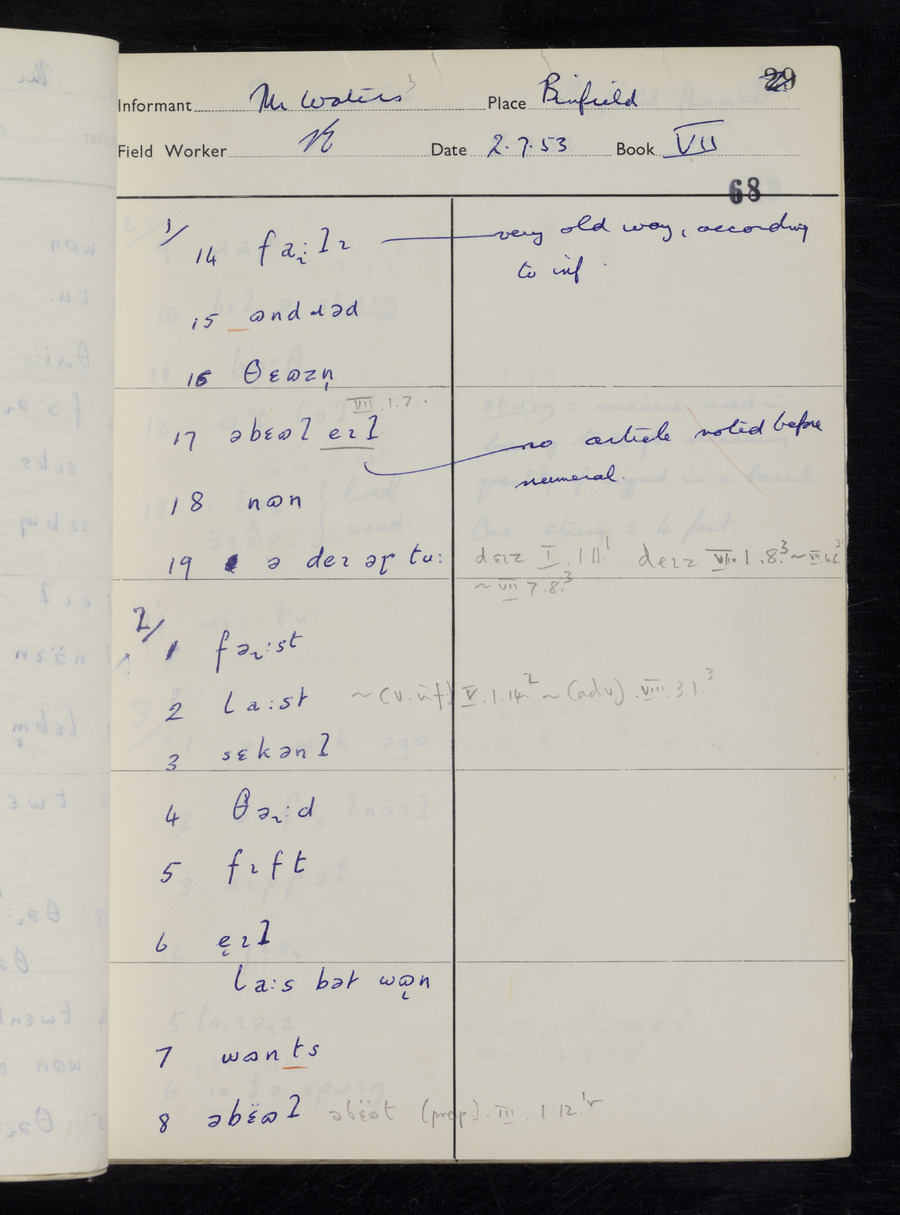 29
Informant Mr Waters Place Binfield
Field Worker Date 2.7.53 Book VII
68
1/
14 very old way, according
to inf.
15 ɷndɹəd
16 θɛɷzn̩
VII.1.7.
17 əbɛɷʔ eɪʔ no article noted before
numeral.
18 nɷn
19 ə deɪ əɽ tu: deɪz I.1.11.¹ deɪz VII.1.8.³ ~
~ VII 7.8.³
2/
1 fəɽ:st
2 la:st ~ (v. inf) V.1.14.² ~ (adv). VIII.3.1.³
3 sɛkənʔ
4 θəɽ:d
5 fɪft
6 e̞ɪʔ
la:s bət wɷ̨n
7 wɷnts
8 əbɛ̈ɷʔ əbɛ̈ɷt (prep). III.1.12.